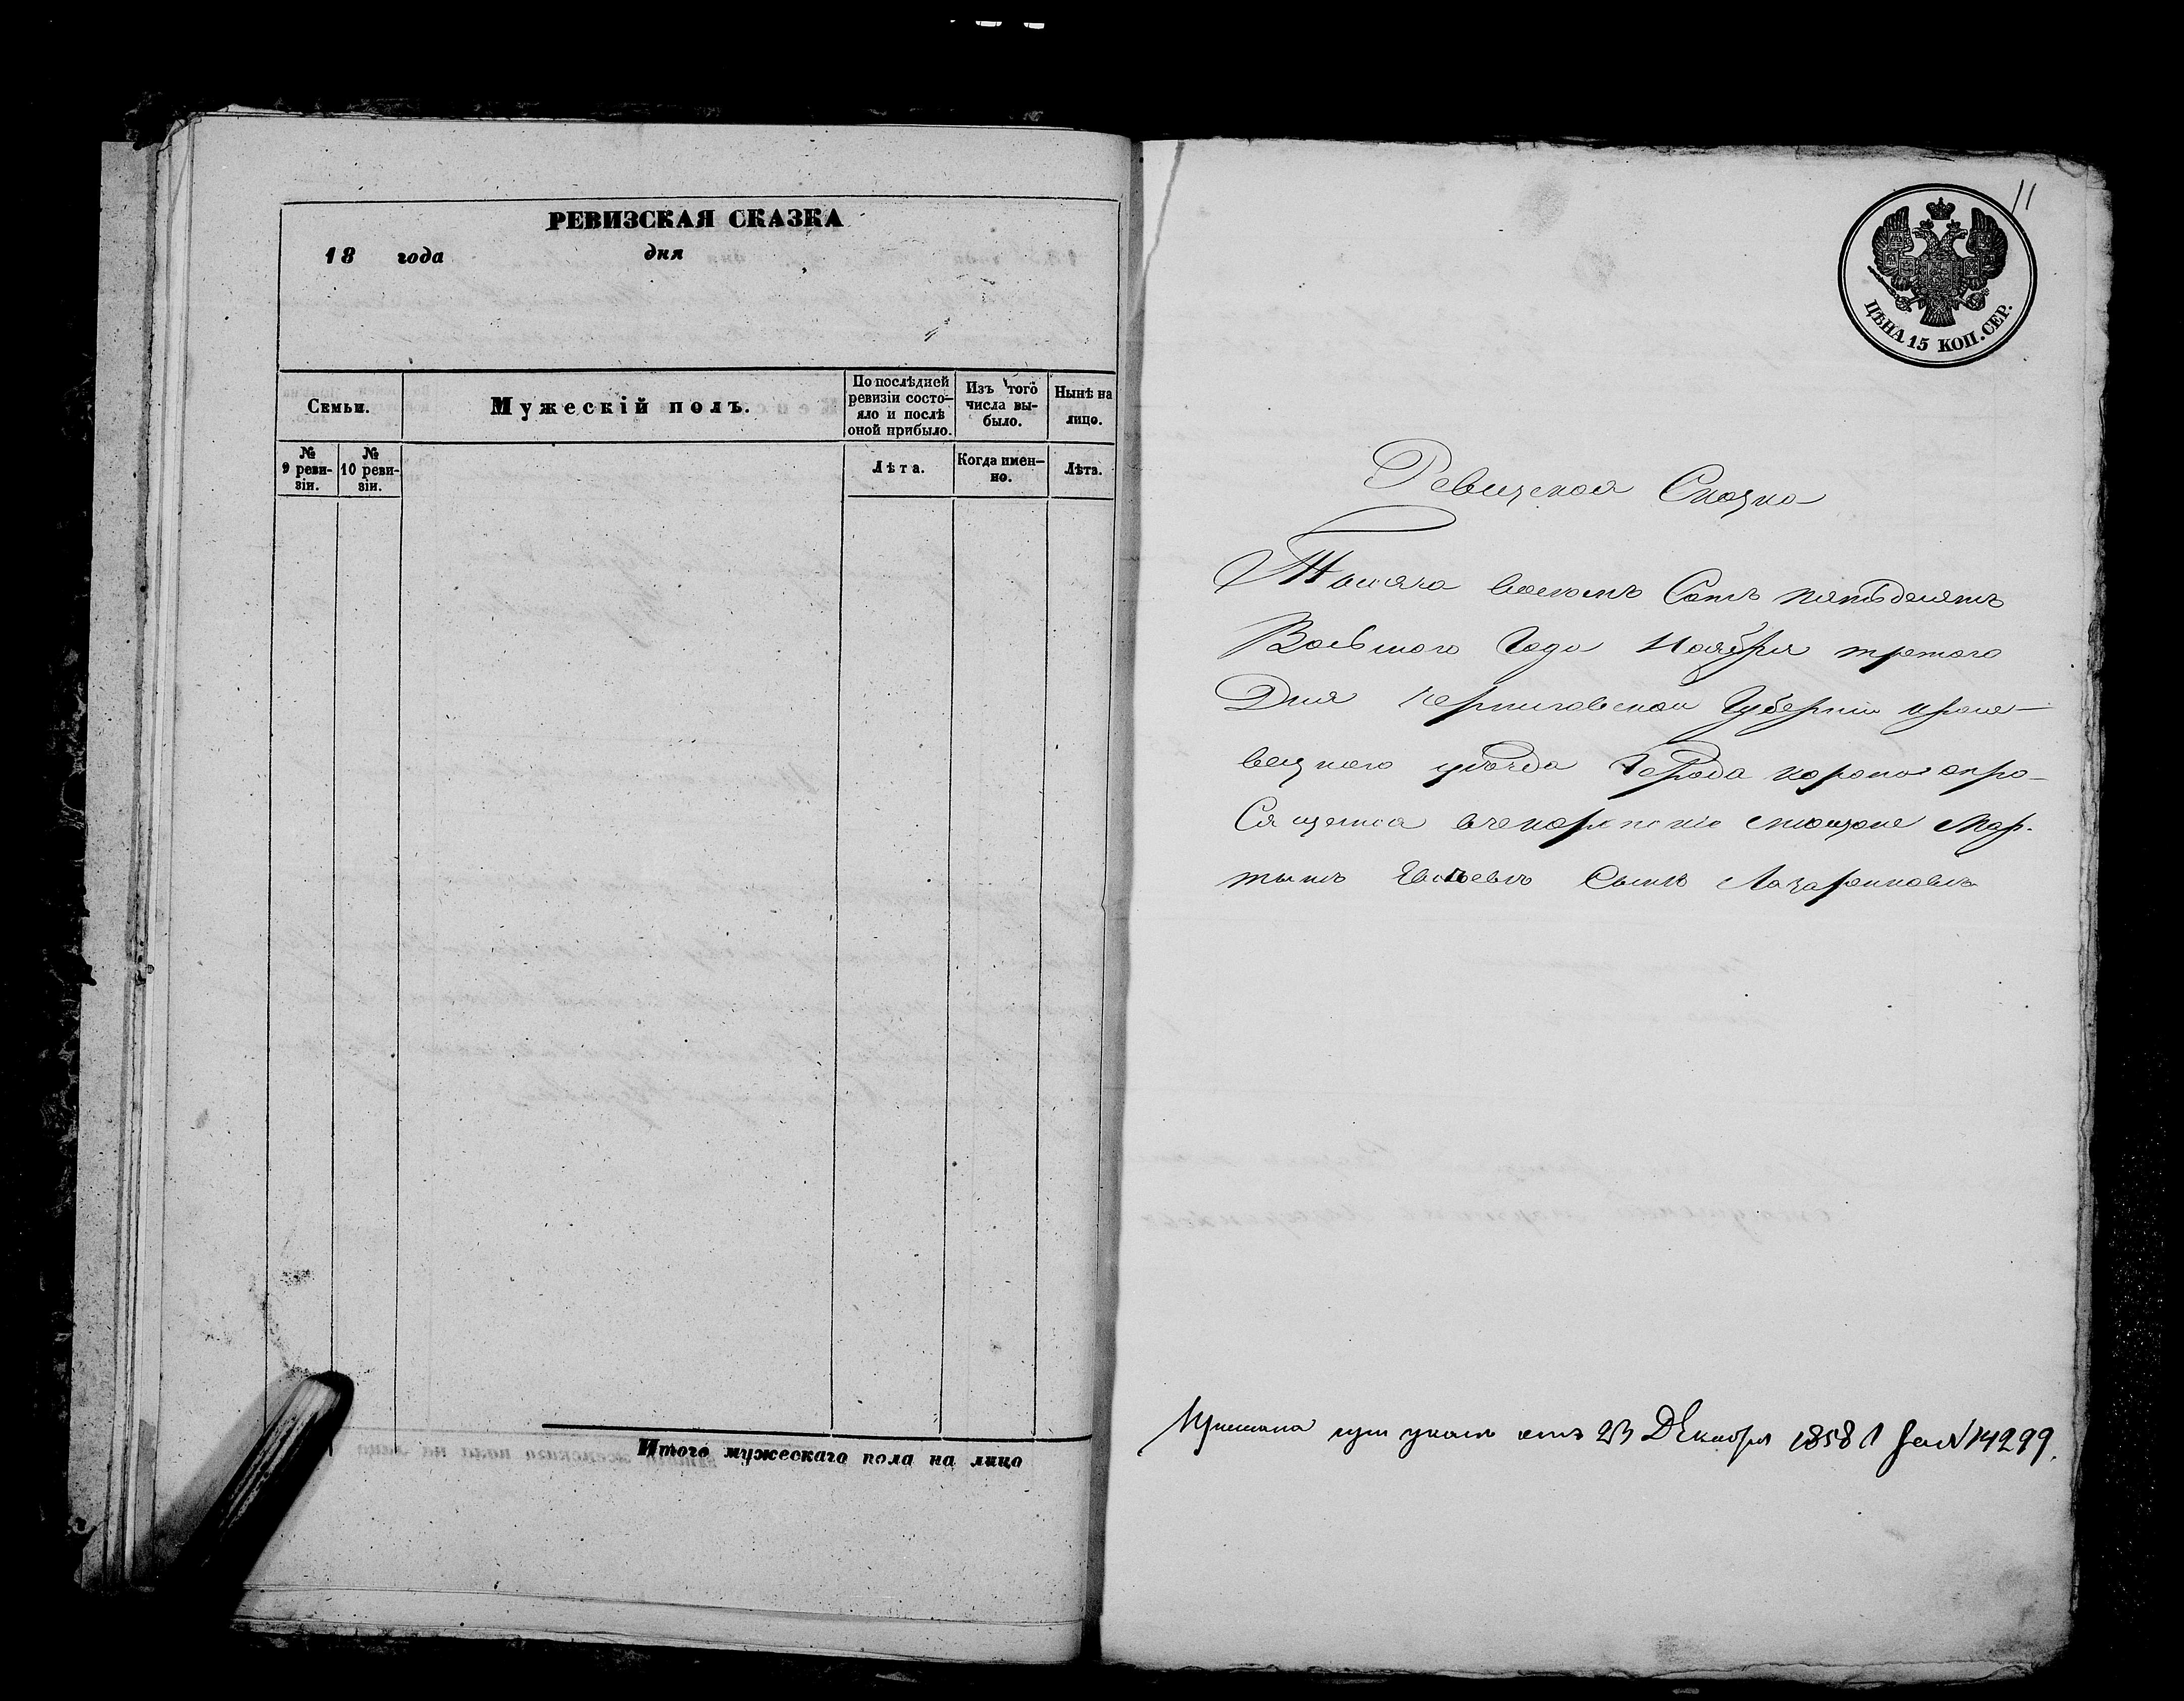 РЕВИЗСКАЯ СКАЗКА
18 года дня
Семьи.
Мужескій полъ.
По послѣдней ревизіи состояло и послѣ оной прибыло.
Изъ того числа выбыло.
Нынѣ на лицо.
№ 9 ревизіи.
№ 10 ревизіи.
Лѣта.
Когда именно.
Лѣта.
Итого мужескаго пола на лицо
11
ЦѢНА 15 КОП. СЕР.
Ревизская Сказка
Тысяча восемъ Сотъ пятьдесятъ
Восьмого Года Ноября третого
Дня Черниговской Губерніи кроле-
вецкого уѣзда Города коропа опро-
Сящемся мещане Мар-
тынъ Сынъ Лазаренковъ
при указѣ отъ 23 Декабря 1858 г за № 14299.